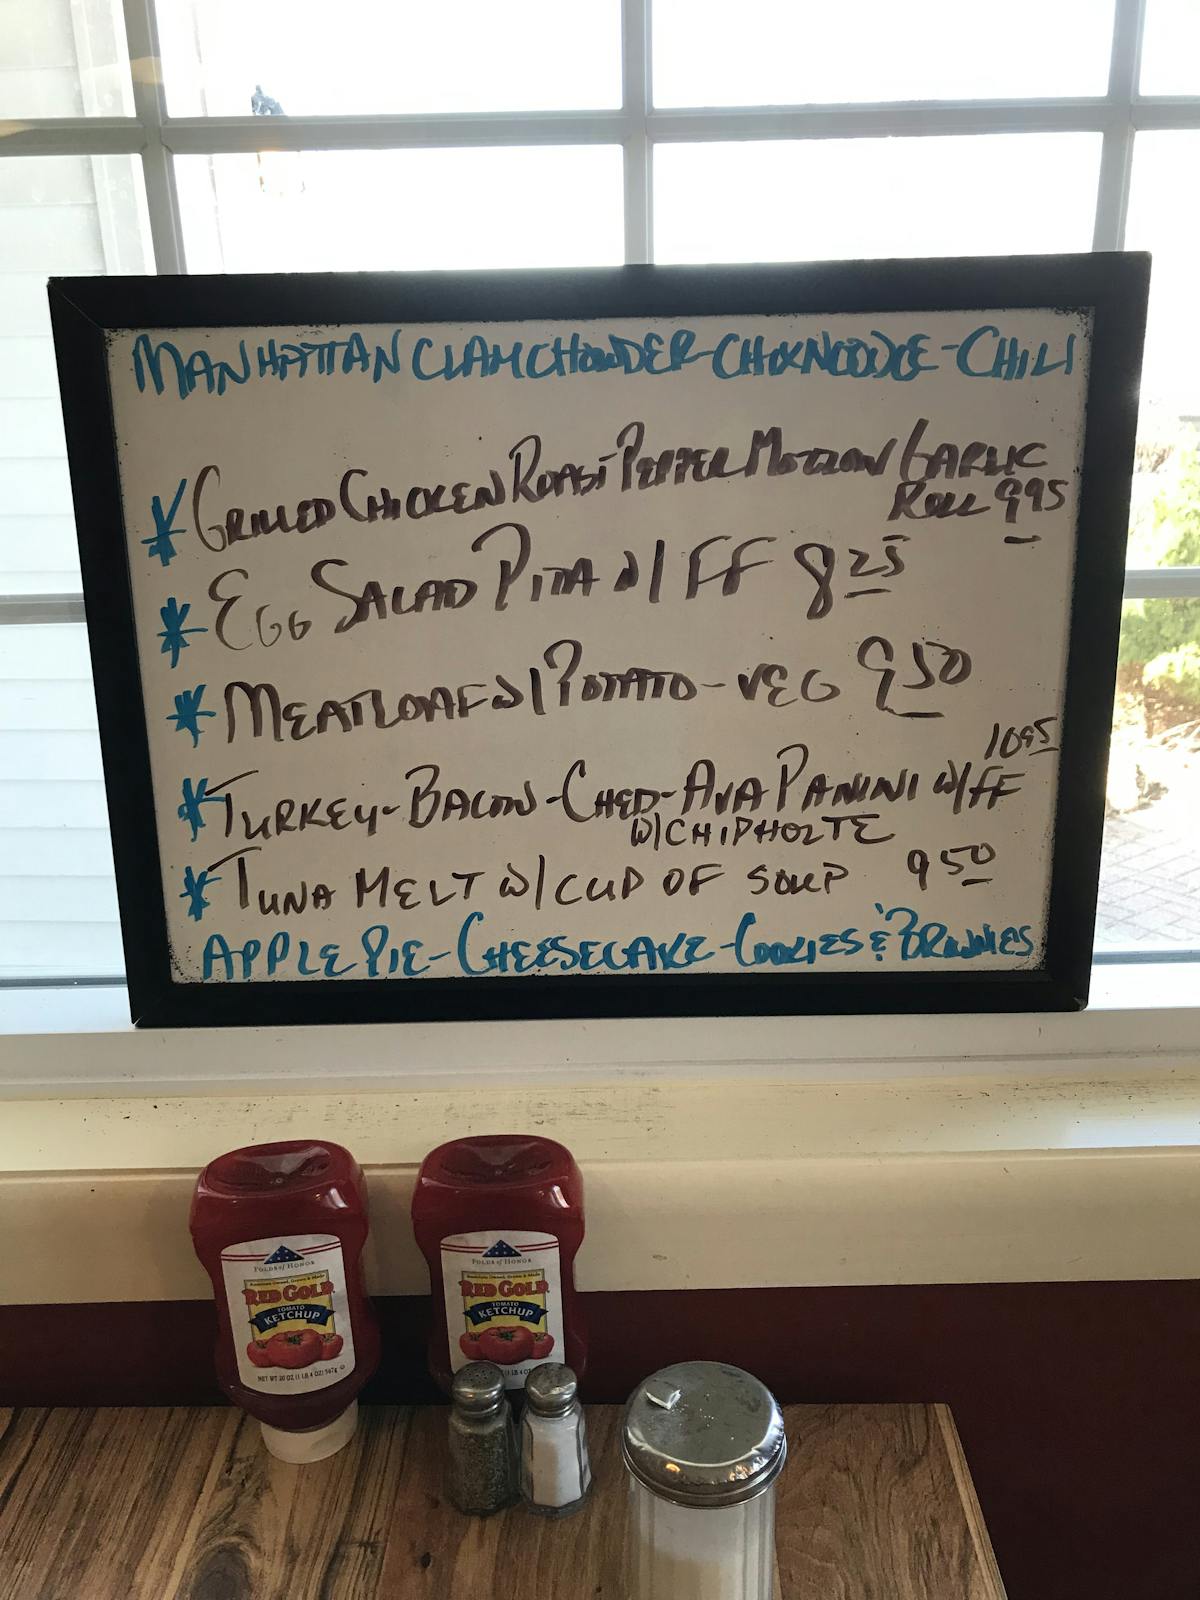 MANHATTAN CLAM CHOWDER - CHIXNOODLE - CHILI
* GRILLED CHICKEN ROAST PEPPER MOZZ ON GARLIC
ROLL 9 95
* EGG SALAD PITA W/ FF 8 25
* MEATLOAF W/ POTATO - VEG 9 50
10 95
* TURKEY - BACON - CHED - AVA PANINI W/ FF
W/ CHIPHOLTE
* TUNA MELT W/ CUP OF SOUP 9 50
APPLE PIE - CHEESECAKE - COOKIES & BROWNIES
FOLDS of HONOR
American Owned, Grown & Made
RED GOLD
TOMATO
KETCHUP
NET WT 20 OZ (1 LB 4 OZ) 567g
FOLDS of HONOR
RED GOLD
TOMATO
KETCHUP